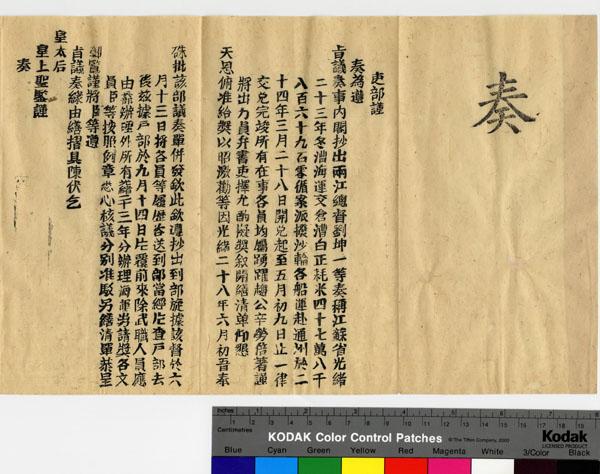 奏
吏部謹
奏為遵
旨議奏事內閣抄出兩江總督劉坤一等奏稱江蘇省光緒
二十三年冬漕海運交倉漕白正耗米四十七萬八千
八百六十九石零備案派撥沙輪各船運赴通州於二
十四年三月二十八日開兌起至五月初九日止一律
交兌完竣所有在事各員均屬踴躍趨公辛勞倍著謹
將出力員弁書吏擇尤酌擬獎敘開繕清單仰懇
天恩俯准給獎以昭激勸等因光緒二十八年六月初吾奉
硃批該部議奏單併發欽此欽遵抄出到部旋據該督於六
月十三日將各員等履歷咨送到部當經片查戶部去
後茲據戶部於九月十四日片覆前來除武職人員應
由 辦理外所有蘇 二十三年分辦理海運出 請獎各文
員臣等按照例章悉心核議分別准駁另繕清單恭呈
御覽謹將臣等遵
旨議奏緣由繕摺具陳伏乞
皇太后
皇上聖鑒謹
奏
inches
Centimetres
KODAK Color Control Patches
© The Tiffen Company, 2000
Kodak
LICENSED PRODUCT
Blue Cyan Green Yellow Red Magenta White 3/Color Black